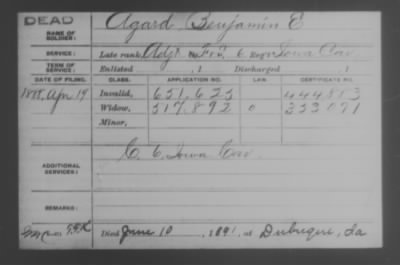 DEAD
NAME OF SOLDIER: Agard, Benjamin E
SERVICE: Late rank, Adjt F&S, 6 Reg't Iowa Cav
TERM OF SERVICE: Enlisted , 1 Discharged , 1
DATE OF FILING. CLASS. APPLICATION NO. LAW. CERTIFICATE NO.
1888, Apr 19 Invalid, 651,623 444553
Widow, 517,892 0 333071
Minor,
ADDITIONAL SERVICES: C. 6. Iowa Cav.
REMARKS:
Died June 10, 1891, at Dubuque, Ia